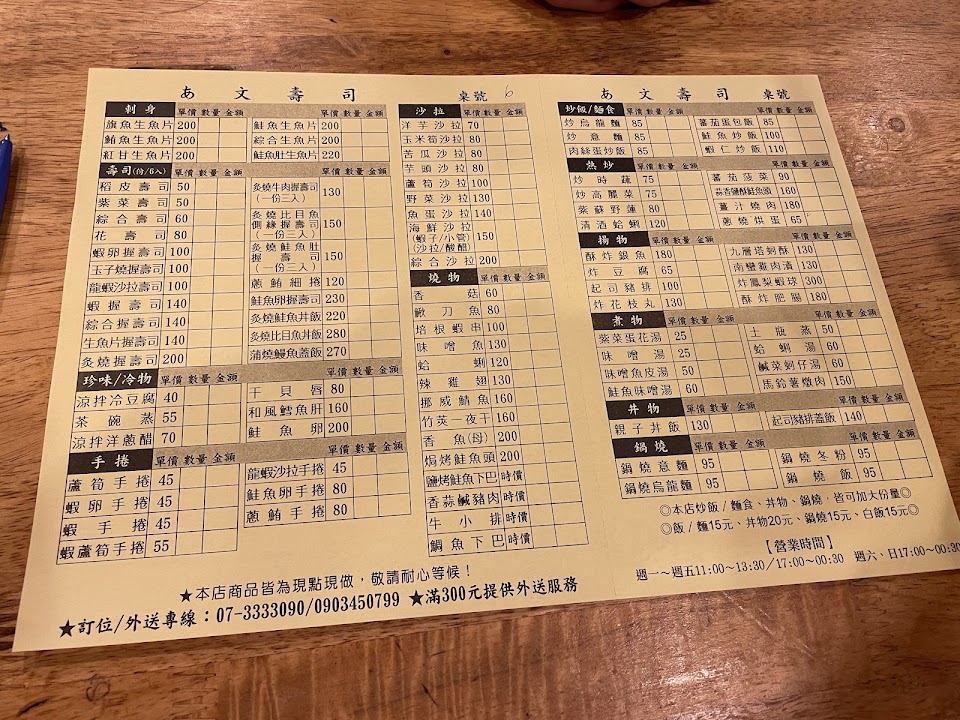 あ文壽司 桌號 6
刺身 單價 數量 金額 單價 數量 金額
旗魚生魚片 200 鮭魚生魚片 200
鮪魚生魚片 200 綜合生魚片 200
紅甘生魚片 200 鮭魚肚生魚片 220
壽司(份/6入) 單價 數量 金額 單價 數量 金額
稻皮壽司 50
紫菜壽司 50
綜合壽司 60
花壽司 80
蝦卵握壽司 100
玉子燒握壽司 100
龍蝦沙拉壽司 100
蝦握壽司 140
綜合握壽司 140
生魚片握壽司 140
炙燒握壽司 200
炙燒牛肉握壽司(一份三入) 130
炙燒比目魚側緣握壽司(一份三入) 150
炙燒鮭魚肚握壽司(一份三入) 150
蔥鮪細捲 120
鮭魚卵握壽司 230
炙燒鮭魚丼飯 220
炙燒比目魚丼飯 280
蒲燒鰻魚蓋飯 270
珍味/冷物 單價 數量 金額 單價 數量 金額
涼拌冷豆腐 40 干貝唇 80
茶碗蒸 55 和風鱈魚肝 160
涼拌洋蔥醋 70 鮭魚卵 200
手捲 單價 數量 金額 單價 數量 金額
蘆筍手捲 45 龍蝦沙拉手捲 45
蝦卵手捲 45 鮭魚卵手捲 80
蝦手捲 45 蔥鮪手捲 80
蝦蘆筍手捲 55
沙拉 單價 數量 金額
洋芋沙拉 70
玉米筍沙拉 80
苦瓜沙拉 80
芋頭沙拉 80
蘆筍沙拉 100
野菜沙拉 130
魚蛋沙拉 140
海鮮沙拉(蝦子/小管)(沙拉/酸醋) 150
綜合沙拉 200
燒物 單價 數量 金額
香菇 60
鰍刀魚 80
培根蝦串 100
味噌魚 130
蛤蜊 120
辣雞翅 130
挪威鯖魚 160
竹筴一夜干 160
香魚(母) 200
焗烤鮭魚頭 200
鹽烤鮭魚下巴 時價
香蒜鹹豬肉 時價
牛小排 時價
鯛魚下巴 時價
あ文壽司 桌號
炒飯/麵食 單價 數量 金額 單價 數量 金額
炒烏龍麵 85 蕃茄蛋包飯 85
炒意麵 85 鮭魚炒飯 100
肉絲蛋炒飯 85 蝦仁炒飯 110
熱炒 單價 數量 金額 單價 數量 金額
炒時蔬 75 蕃茄菠菜 90
炒高麗菜 75 蒜香鹽酥鮭魚頭 160
紫蘇野蓮 80 薑汁燒肉 180
清酒蛤蜊 120 蔥燒烘蛋 65
揚物 單價 數量 金額 單價 數量 金額
酥炸銀魚 180 九層塔蚵酥 130
炸豆腐 65 南蠻雞肉漬 130
起司豬排 100 炸鳳梨蝦球 300
炸花枝丸 130 酥炸肥腸 180
煮物 單價 數量 金額 單價 數量 金額
紫菜蛋花湯 25 土瓶蒸 50
味噌湯 25 蛤蜊湯 60
味噌魚皮湯 50 鹹菜蚵仔湯 60
鮭魚味噌湯 60 馬鈴薯燉肉 150
丼物 單價 數量 金額 單價 數量 金額
親子丼飯 130 起司豬排蓋飯 140
鍋燒 單價 數量 金額 單價 數量 金額
鍋燒意麵 95 鍋燒冬粉 95
鍋燒烏龍麵 95 鍋燒飯 95
◎本店炒飯/麵食、丼物、鍋燒,皆可加大份量◎
◎飯/麵15元、丼物20元、鍋燒15元、白飯15元◎
【營業時間】
週一～週五11:00~13:30/17:00~00:30 週六、日17:00~00:30
★本店商品皆為現點現做,敬請耐心等候!
★訂位/外送專線:07-3333090/0903450799 ★滿300元提供外送服務